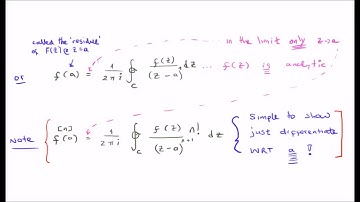 called the 'residue'
of F(z) @ z=a
in the limit only z→a
or f(a) = 1/2πi ∮_C f(z)/(z-a) dz ... f(z) is analytic.
Note { f^[n](a) = 1/2πi ∮_C f(z)/(z-a)^n+1 n! dz { Simple to show
just differentiate
WRT a !